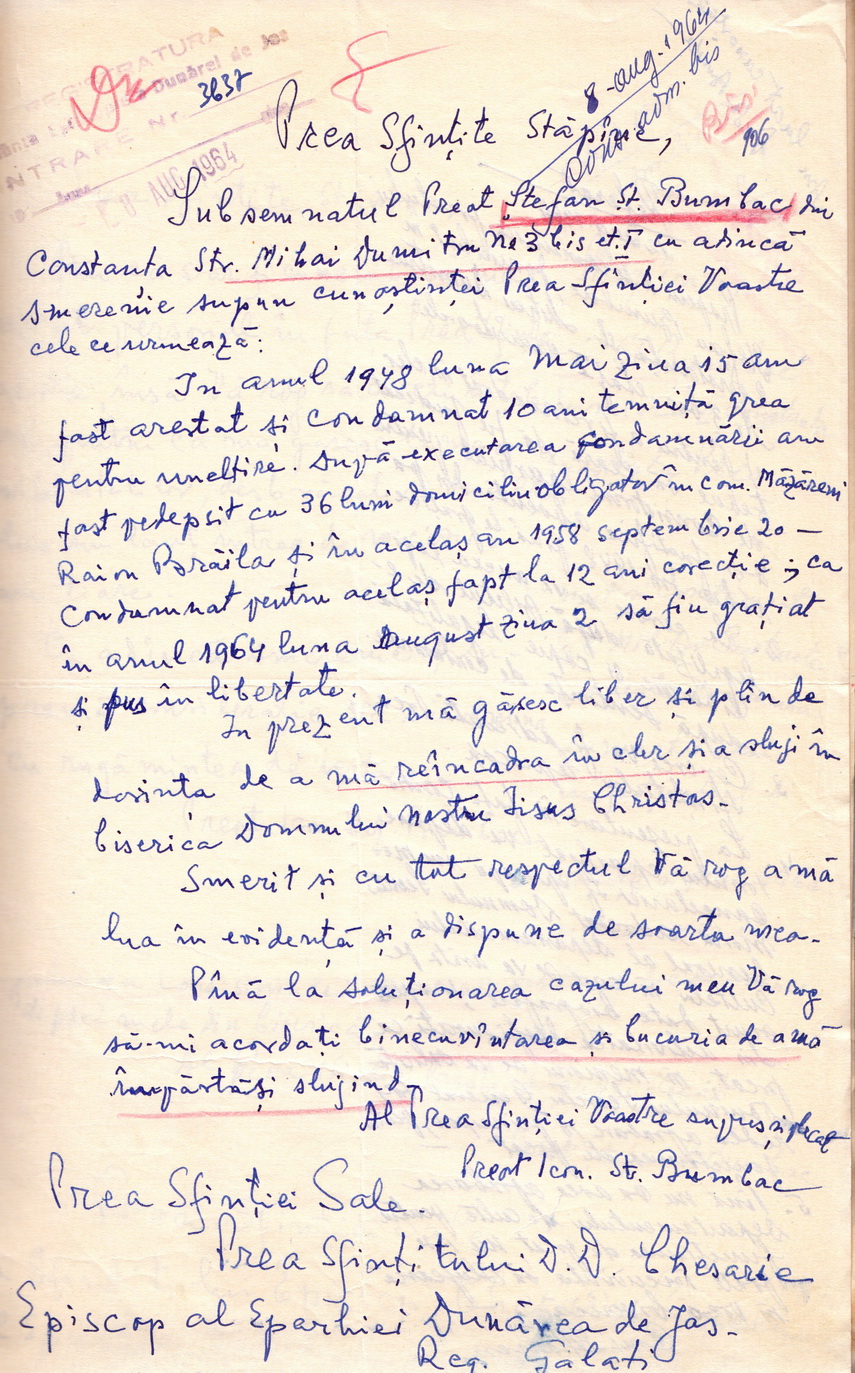 REGISTRATURA
Dunărei de Jos
3637
INTRARE Nr.
8 AUG 1964
8-aug. 1964
adm. bis
906
Prea Sfințite Stăpîne,
Subsemnatul Preot Ștefan St. Bumbac din
Constanta Str. Mihai Dumitru No 3 bis et. I cu adîncă
smerenie supun cunoștinței Prea Sfinției Voastre
cele ce urmează:
In anul 1948 luna Mai ziua 15 am
fost arestat și condamnat 10 ani temniță grea
pentru uneltire. După executarea condamnării am
fost pedepsit cu 36 luni domiciliu obligator în com. Măzăreni
Raion Brăila și în acelaș an 1958 septembrie 20 —
Condamnat pentru acelaș fapt la 12 ani corecție; ca
în anul 1964 luna August ziua 2 să fiu grațiat
și pus în libertate.
In prezent mă găsesc liber și plin de
dorința de a mă reîncadra în cler și a sluji în
biserica Domnului nostru Iisus Christos.
Smerit și cu tot respectul Vă rog a mă
lua în evidență și a dispune de soarta mea.
Pînă la soluționarea cazului meu Vă rog
să-mi acordați binecuvîntarea și bucuria de a mă
împărtăși slujind.
Al Prea Sfinției Voastre supus și plecat
Preot Icon. St. Bumbac
Prea Sfinției Sale.
Prea Sfințitului D.D. Chesarie
Episcop al Eparhiei Dunărea de Jos.
Reg. Galați